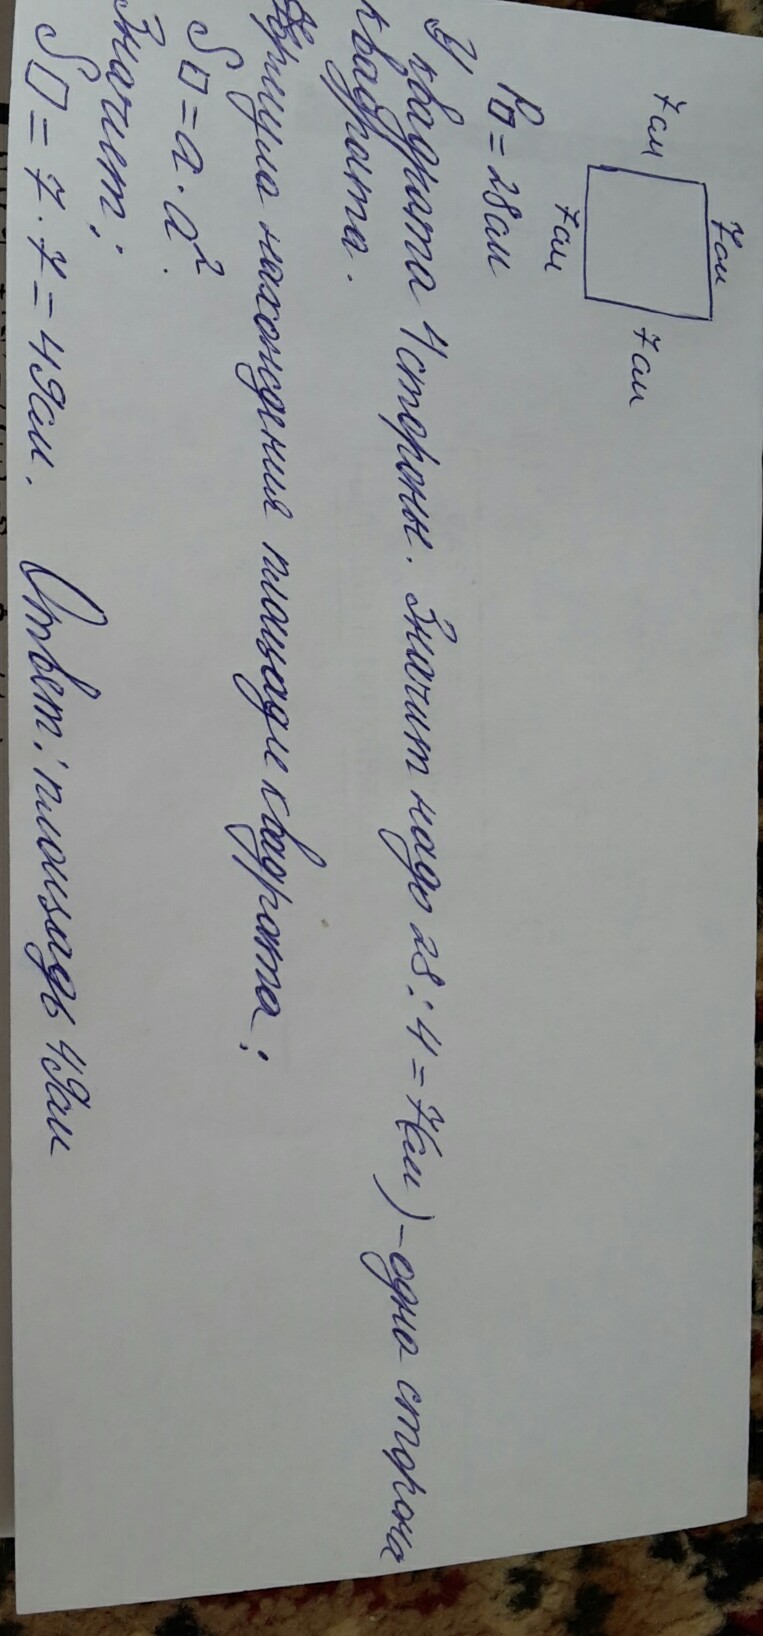 7см
7см
7см
7см
P□ = 28см
У квадрата 4 стороны. Значит надо 28 : 4 = 7(см) – одна сторона
квадрата.
Формула нахождения площади квадрата :
S□ = a · a².
Значит :
S□ = 7 · 7 = 49см. Ответ : площадь 49см